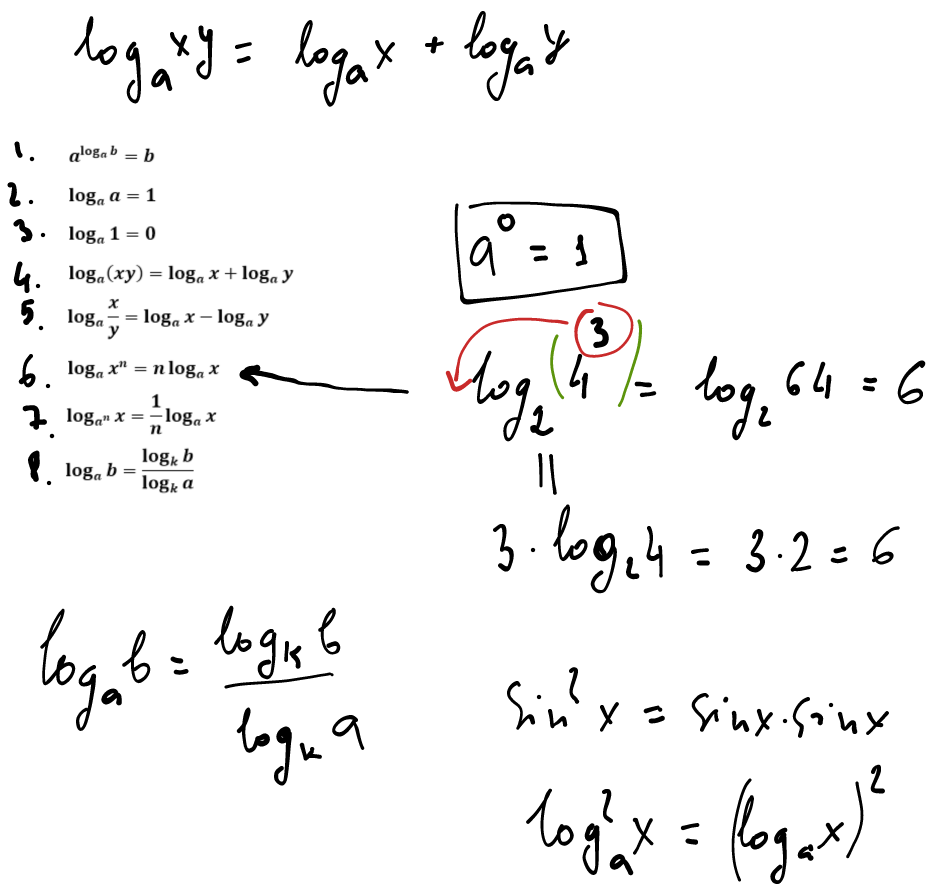 logₐ xy = logₐ x + logₐ y
1. a^(logₐ b) = b
2. logₐ a = 1
3. logₐ 1 = 0
a⁰ = 1
4. logₐ(xy) = logₐ x + logₐ y
5. logₐ x/y = logₐ x − logₐ y
6. logₐ xⁿ = n logₐ x
log₂ (4³) = log₂ 64 = 6
7. log_(aⁿ) x = 1/n logₐ x
8. logₐ b = log_k b / log_k a
||
3 · log₂ 4 = 3 · 2 = 6
logₐ b = log_k b / log_k a
sin² x = sin x · sin x
log²ₐ x = (logₐ x)²